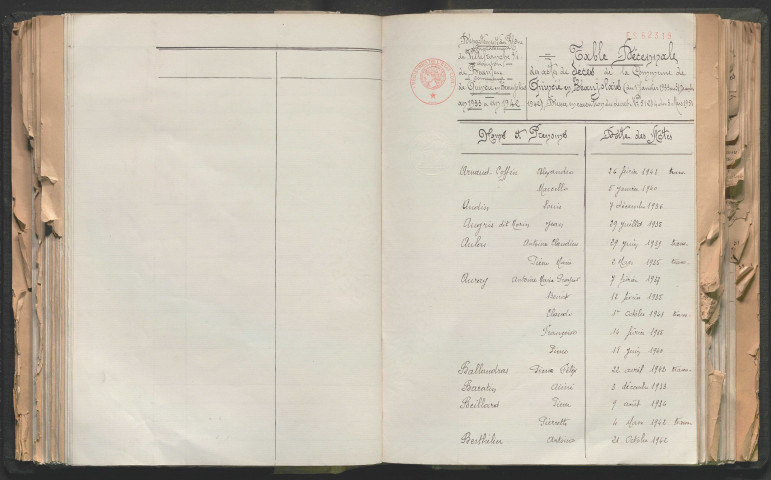 Département du Rhône
de Villefranche s/s
de Beaujeu
de Quincié en Beaujolais
an 1933 à an 1942
Table Décennale
des actes de Décès de la Commune de
Quincié en Beaujolais (du 1er Janvier 1933 au 31 Décembre
1942)
Noms et Prénoms Date des Actes
Arnaud-Coffin Alexandre 26 février 1942 trans.
Marcelle 5 janvier 1940
Audin Louis 7 décembre 1936
Augris dit Marin Jean 29 juillet 1938
Aulois Antoine Claudius 29 juin 1939 trans.
Pierre Marie 2 Mars 1935 trans.
Auray Antoine Marie 7 février 1937
Benoit 18 février 1935
Claude 1er octobre 1941 trans.
Françoise 14 février 1935
Pierre 18 juin 1940
Ballandras Pierre Félix 22 avril 1942 trans.
Barentin Aimé 3 décembre 1933
Beillard Pierre 9 août 1934
Pierrette 4 Mars 1942 trans.
Berthelier Antoine 21 octobre 1942